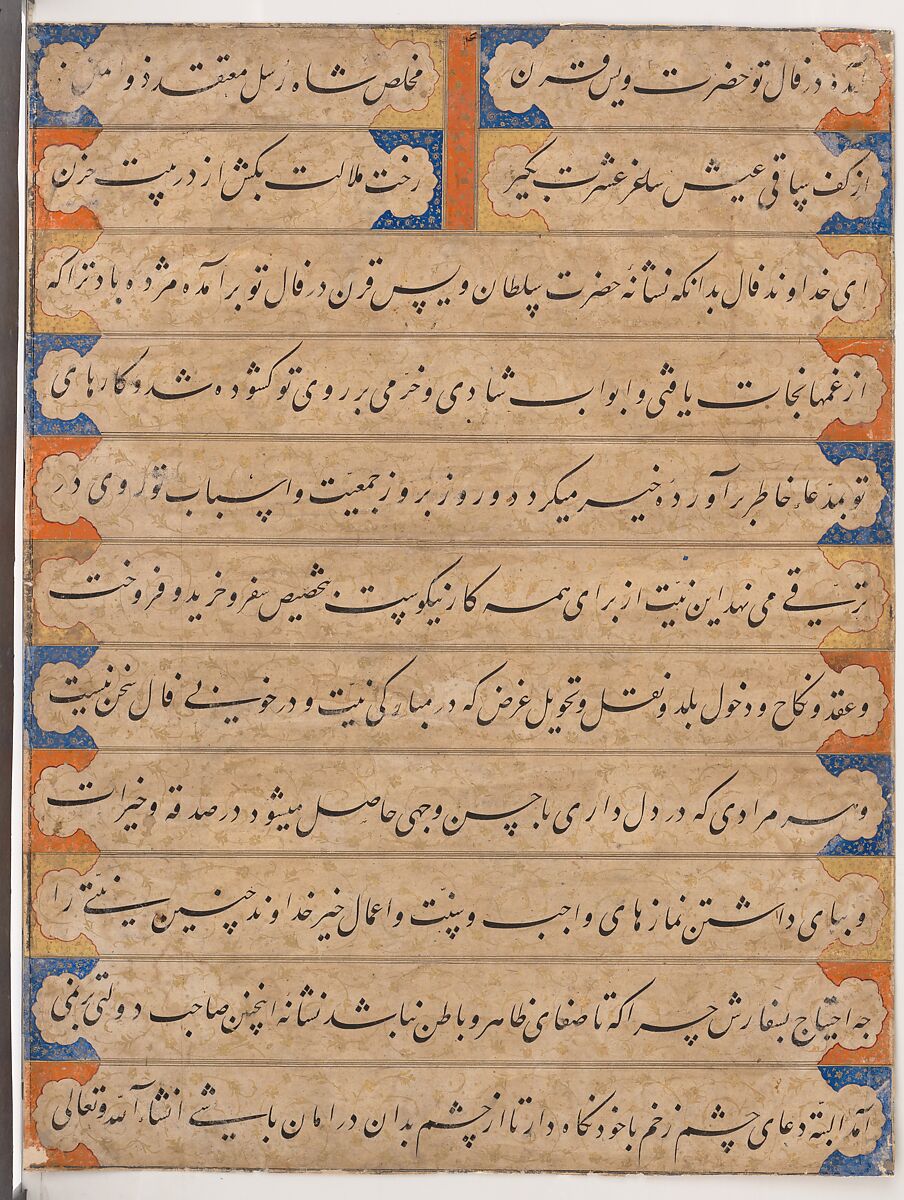 آمده در فال تو حضرت ویس قرن مخلص شاه رسل معتقد ذوالمنن
از کف ساقی عیش ساغر عشرت بگیر رخت ملالت بکش از در بیت حزن
ای خداوند فال بدانکه نشانهٔ حضرت سلطان ویس قرن در فال تو برآمده مژده باد ترا که
از غمها نجات یافتی و ابواب شادی و خرمی بر روی تو کشوده شد و کارهای
تو بمدعاء خاطر برآورده خیر میکردد و روز بروز جمعیت و اسباب تو روی در
ترقی می نهد این نیت از برای همه کار نیکوست بتخصیص سفر و خرید و فروخت
و عقد و نکاح و دخول بلد و نقل و تحویل غرض که در مبارکی نیت و در خوبی فال سخن نیست
و هر مرادی که در دل داری باحسن وجهی حاصل میشود در صدقه و خیرات
و بپای داشتن نمازهای واجب و سنت و اعمال خیر خداوند چنین نیتی را
چه احتیاج بسفارش چرا که تا صفای ظاهر و باطن نباشد نشانهٔ اینچنین صاحب دولتی برنمی
آمد البته دعای چشم زخم با خود نکاه دار تا از چشم بدان در امان باشی انشاء الله تعالی